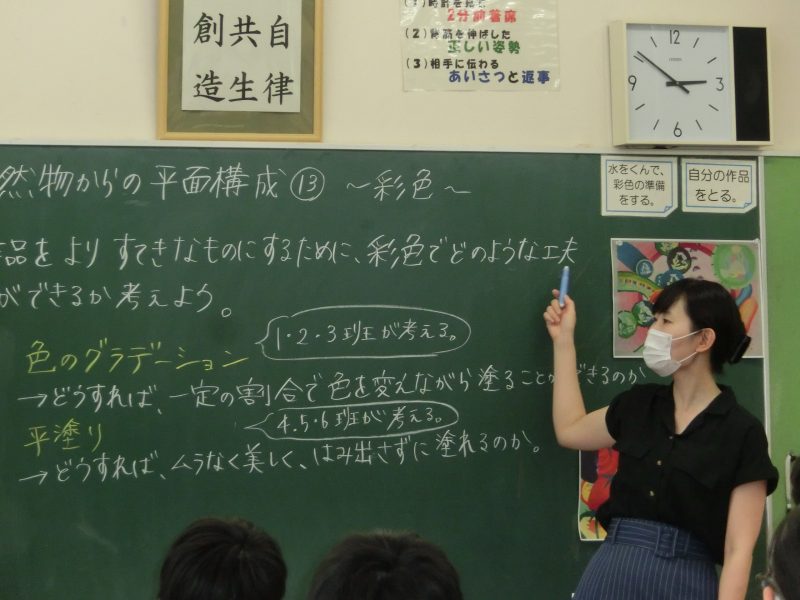 自律
共生
創造
(1)時計を見て
2分前着席
(2)背筋を伸ばした
正しい姿勢
(3)相手に伝わる
あいさつと返事
12
3
6
9
CITIZEN
水をくんで、
彩色の準備
をする。
自分の作品
をとる。
然物からの平面構成⑬ ~彩色~
品をよりすてきなものにするために、彩色でどのような工夫
ができるか考えよう。
色のグラデーション
1・2・3班が考える。
→どうすれば、一定の割合で色を変えながら塗ることができるのか
平塗り
4.5.6班が考える。
→どうすれば、ムラなく美しく、はみ出さずに塗れるのか。